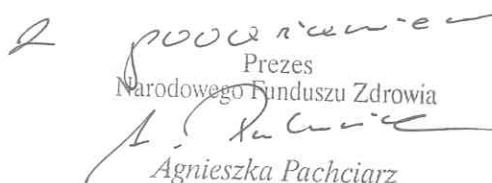 Z poważaniem
Prezes
Narodowego Funduszu Zdrowia
A. Pachciarz
Agnieszka Pachciarz